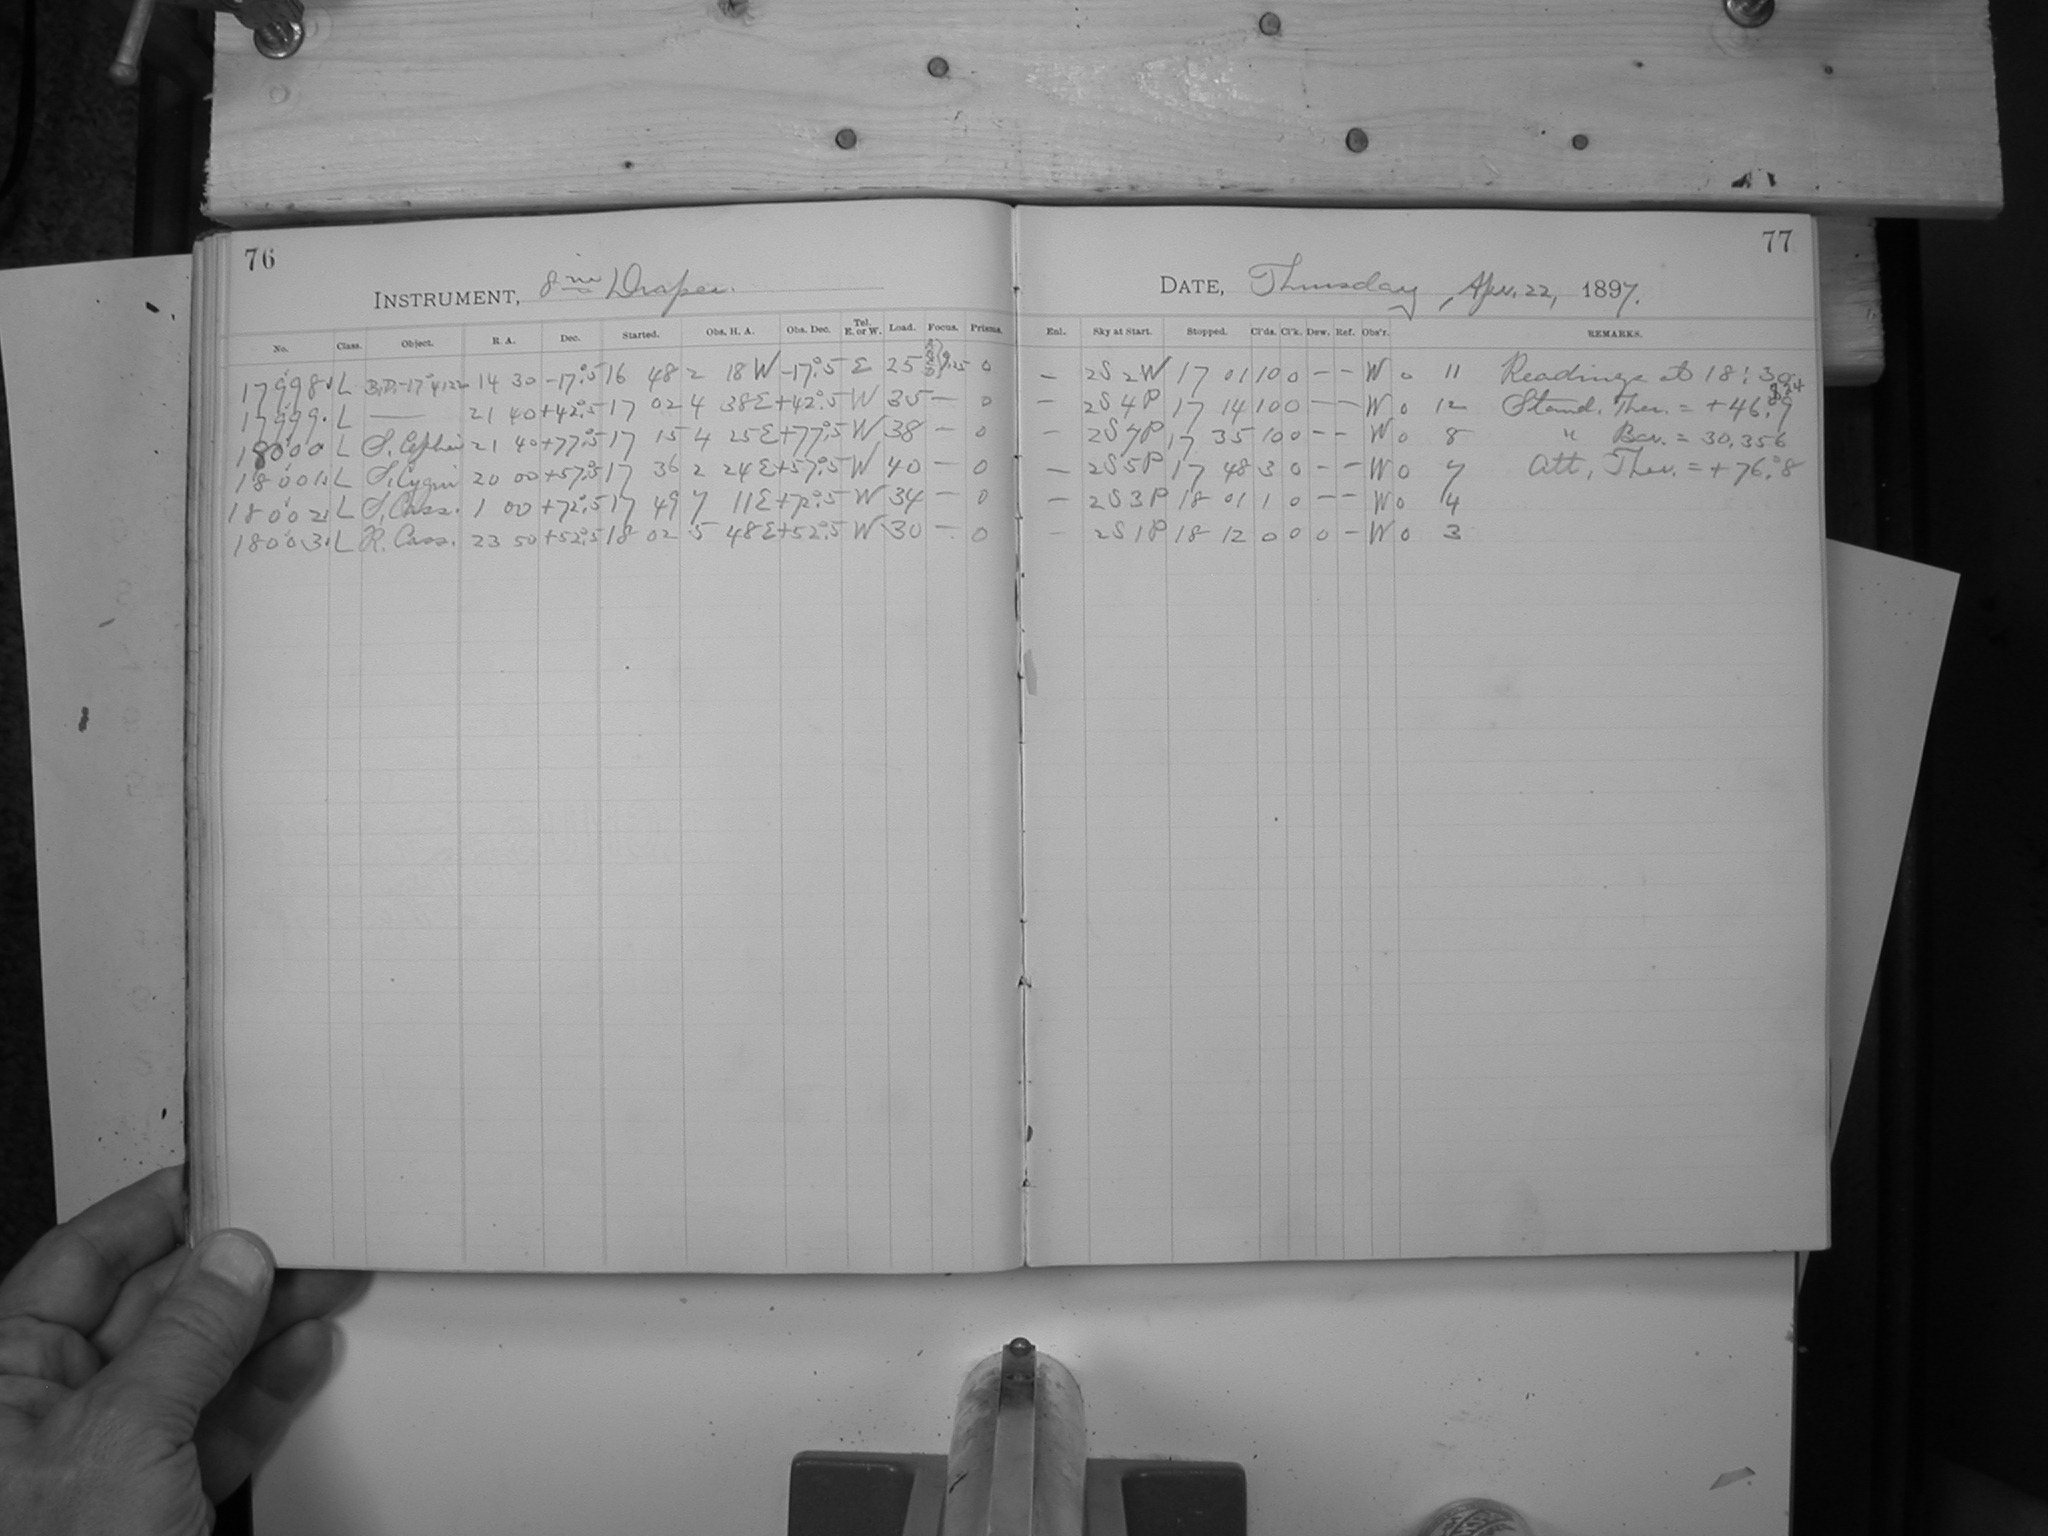 76
INSTRUMENT, 8 in Draper.
No. Class. Object. R. A. Dec. Started. Obs. H. A. Obs. Dec. Tel. E. or W. Load. Focus. Prisms.
17998. L B.D.-17°4122 14 30 -17°.5 16 48 2 18 W -17°.5 E 25 9.25 0
17999. L — 21 40 +42°.5 17 02 4 38 E +42°.5 W 35 — 0
18000 L S. Cephei 21 40 +77°.5 17 15 4 25 E +77°.5 W 38 — 0
18001. L S. Cygni 20 00 +57°.5 17 36 2 24 E +57°.5 W 40 — 0
18002. L S. Cass. 1 00 +72°.5 17 49 7 11 E +72°.5 W 34 — 0
18003. L R. Cass. 23 50 +52°.5 18 02 5 48 E +52°.5 W 30 — 0
77
DATE, Thursday, Apr. 22, 1897.
Enl. Sky at Start. Stopped. Cl'ds. Cl'k. Dew. Ref. Obs'r. REMARKS.
— 2S 2W 17 01 10 0 — — W 0 11 Readings at 18:30
— 2S 4P 17 14 10 0 — — W 0 12 Stand. Ther. = +46.°9
— 2S 7P 17 35 10 0 — — W 0 8 " Bar. = 30.356
— 2S 5P 17 48 3 0 — — W 0 7 Att. Ther. = +76.°8
— 2S 3P 18 01 1 0 — — W 0 4
— 2S 1P 18 12 0 0 0 — W 0 3